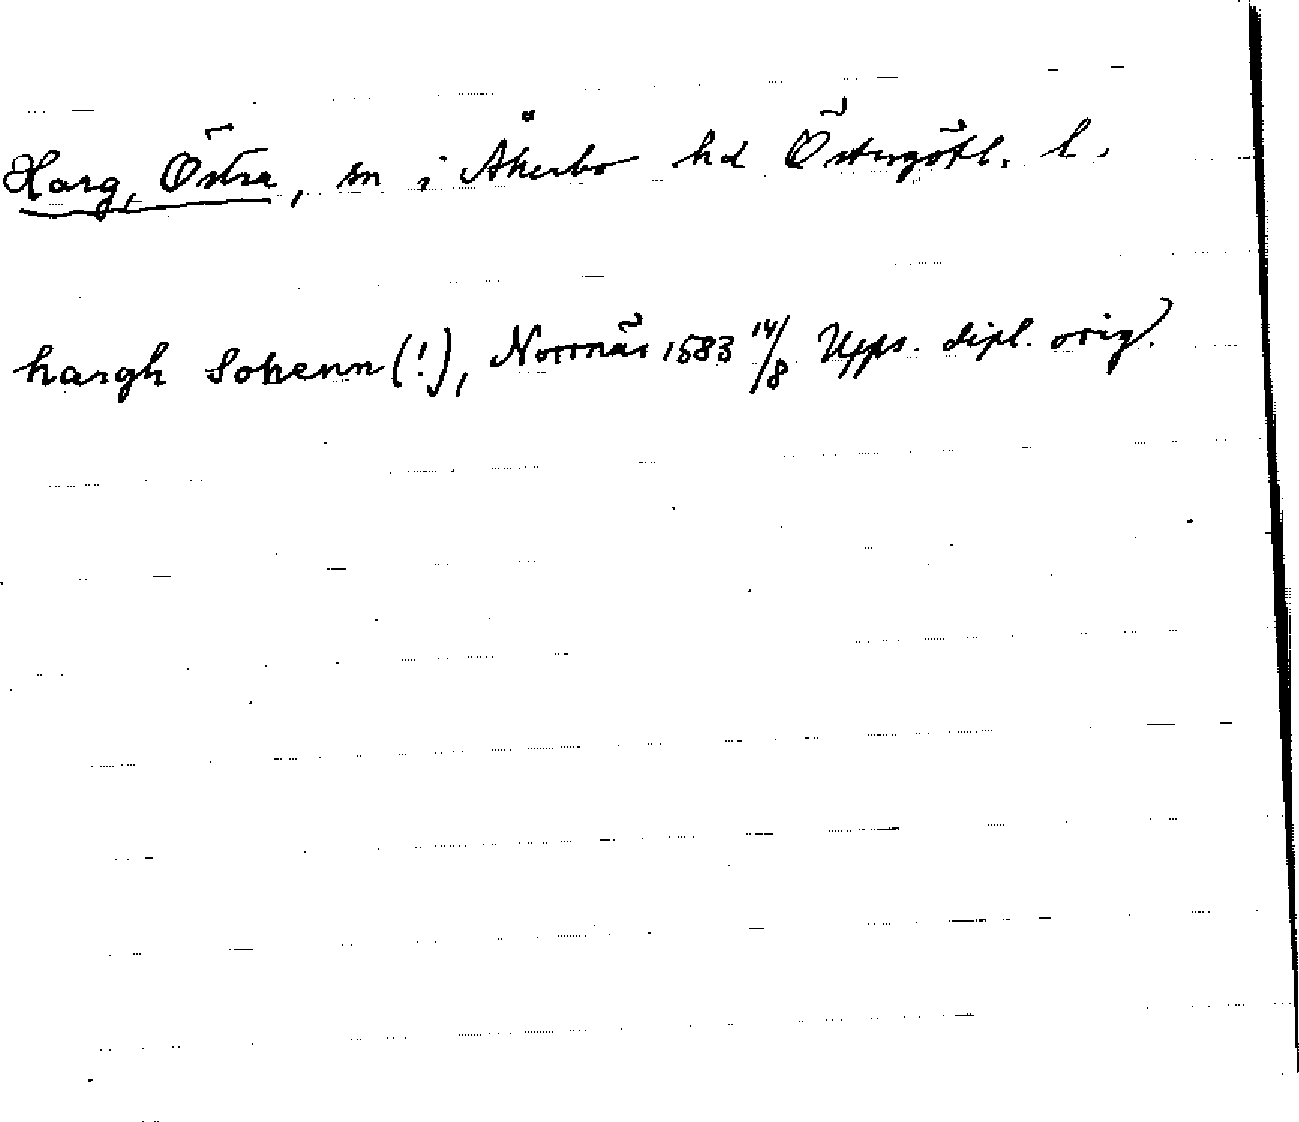 Harg, Östra, sn i Åkerbo hd Östergötl. l.
hargh Sokenn (!), Norrnäs 1583 14/8 Upps. dipl. orig.